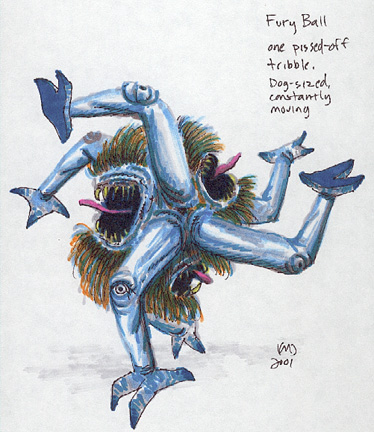 Fury Ball
one pissed-off
tribble.
Dog-sized,
constantly
moving
2001